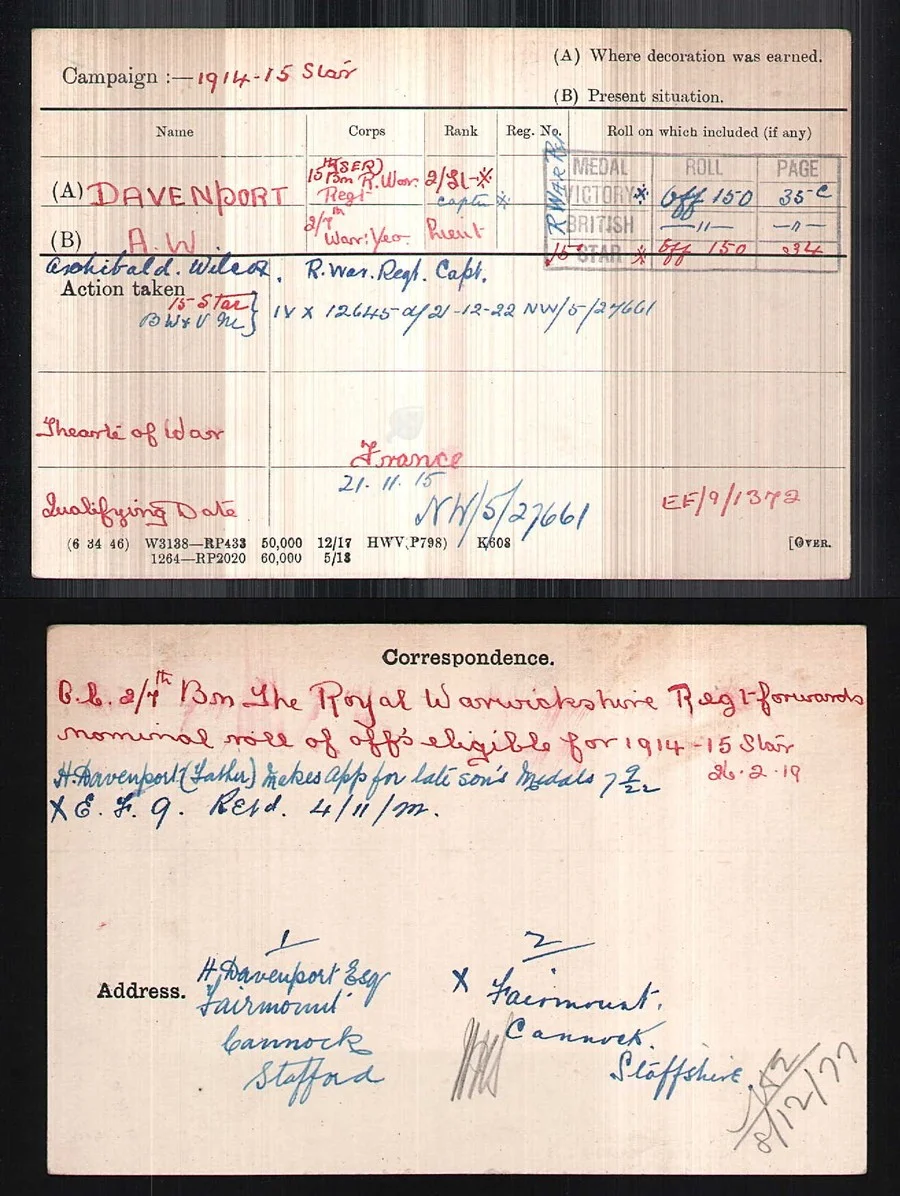 Campaign :— 1914-15 Star
(A) Where decoration was earned.
(B) Present situation.
Name Corps Rank Reg. No. Roll on which included (if any)
MEDAL ROLL PAGE
(A) DAVENPORT 15th (SER) Bn R. War. Regt 2/Lt-※ Capt ※
R WAR R
VICTORY ※ Off 150 35 C
(B) A.W. 2/7th War: Yeo. Lieut
BRITISH —〃— —〃—
15 STAR ※ Off 150 34
Archibald. Wilcox. R.War.Regt. Capt.
Action taken
15-Star }
B W & V M } IV X 12645-d/21-12-22 NW/5/27661
Thearte of War
France
21. 11. 15
Qualifying Date NW/5/27661 EF/9/1372
(6 34 46) W3138—RP433 50,000 12/17 HWV(P798) K608 [OVER.
1264—RP2020 60,000 5/18
Correspondence.
O.C. 2/7th Bn The Royal Warwickshire Regt forwards
nominal roll of offs eligible for 1914-15 Star
26.2.19
H.Davenport (Father) Makes App for late son's Medals 7 9/22
X E. F. 9. Retd. 4/11/
1 2
Address. H. Davenport Esq X Fairmount.
Fairmount Cannock.
Cannock Staffshire.
Stafford
8/12/77